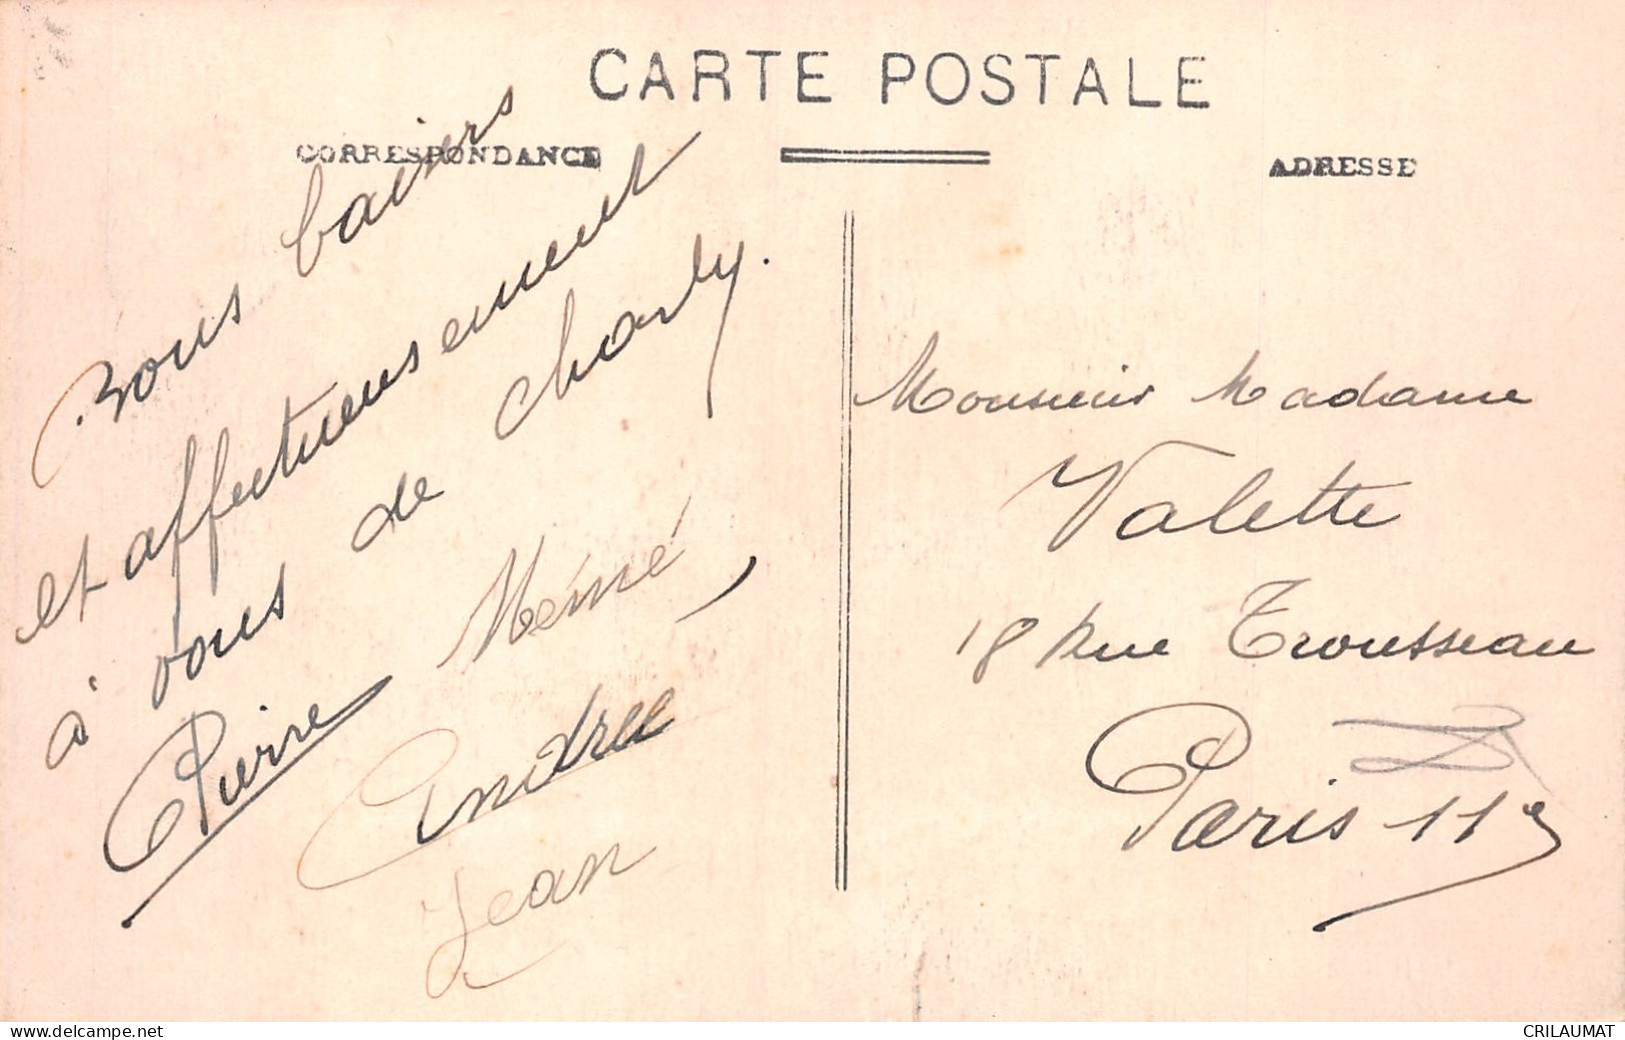 CARTE POSTALE
CORRESPONDANCE
ADRESSE
Bons baisers
et affectueusement
à vous de Charly.
Pierre Mémé
Andrée
Jean
Monsieur Madame
Valette
18 Rue Trousseau
Paris 11e
www.delcampe.net
CRILAUMAT